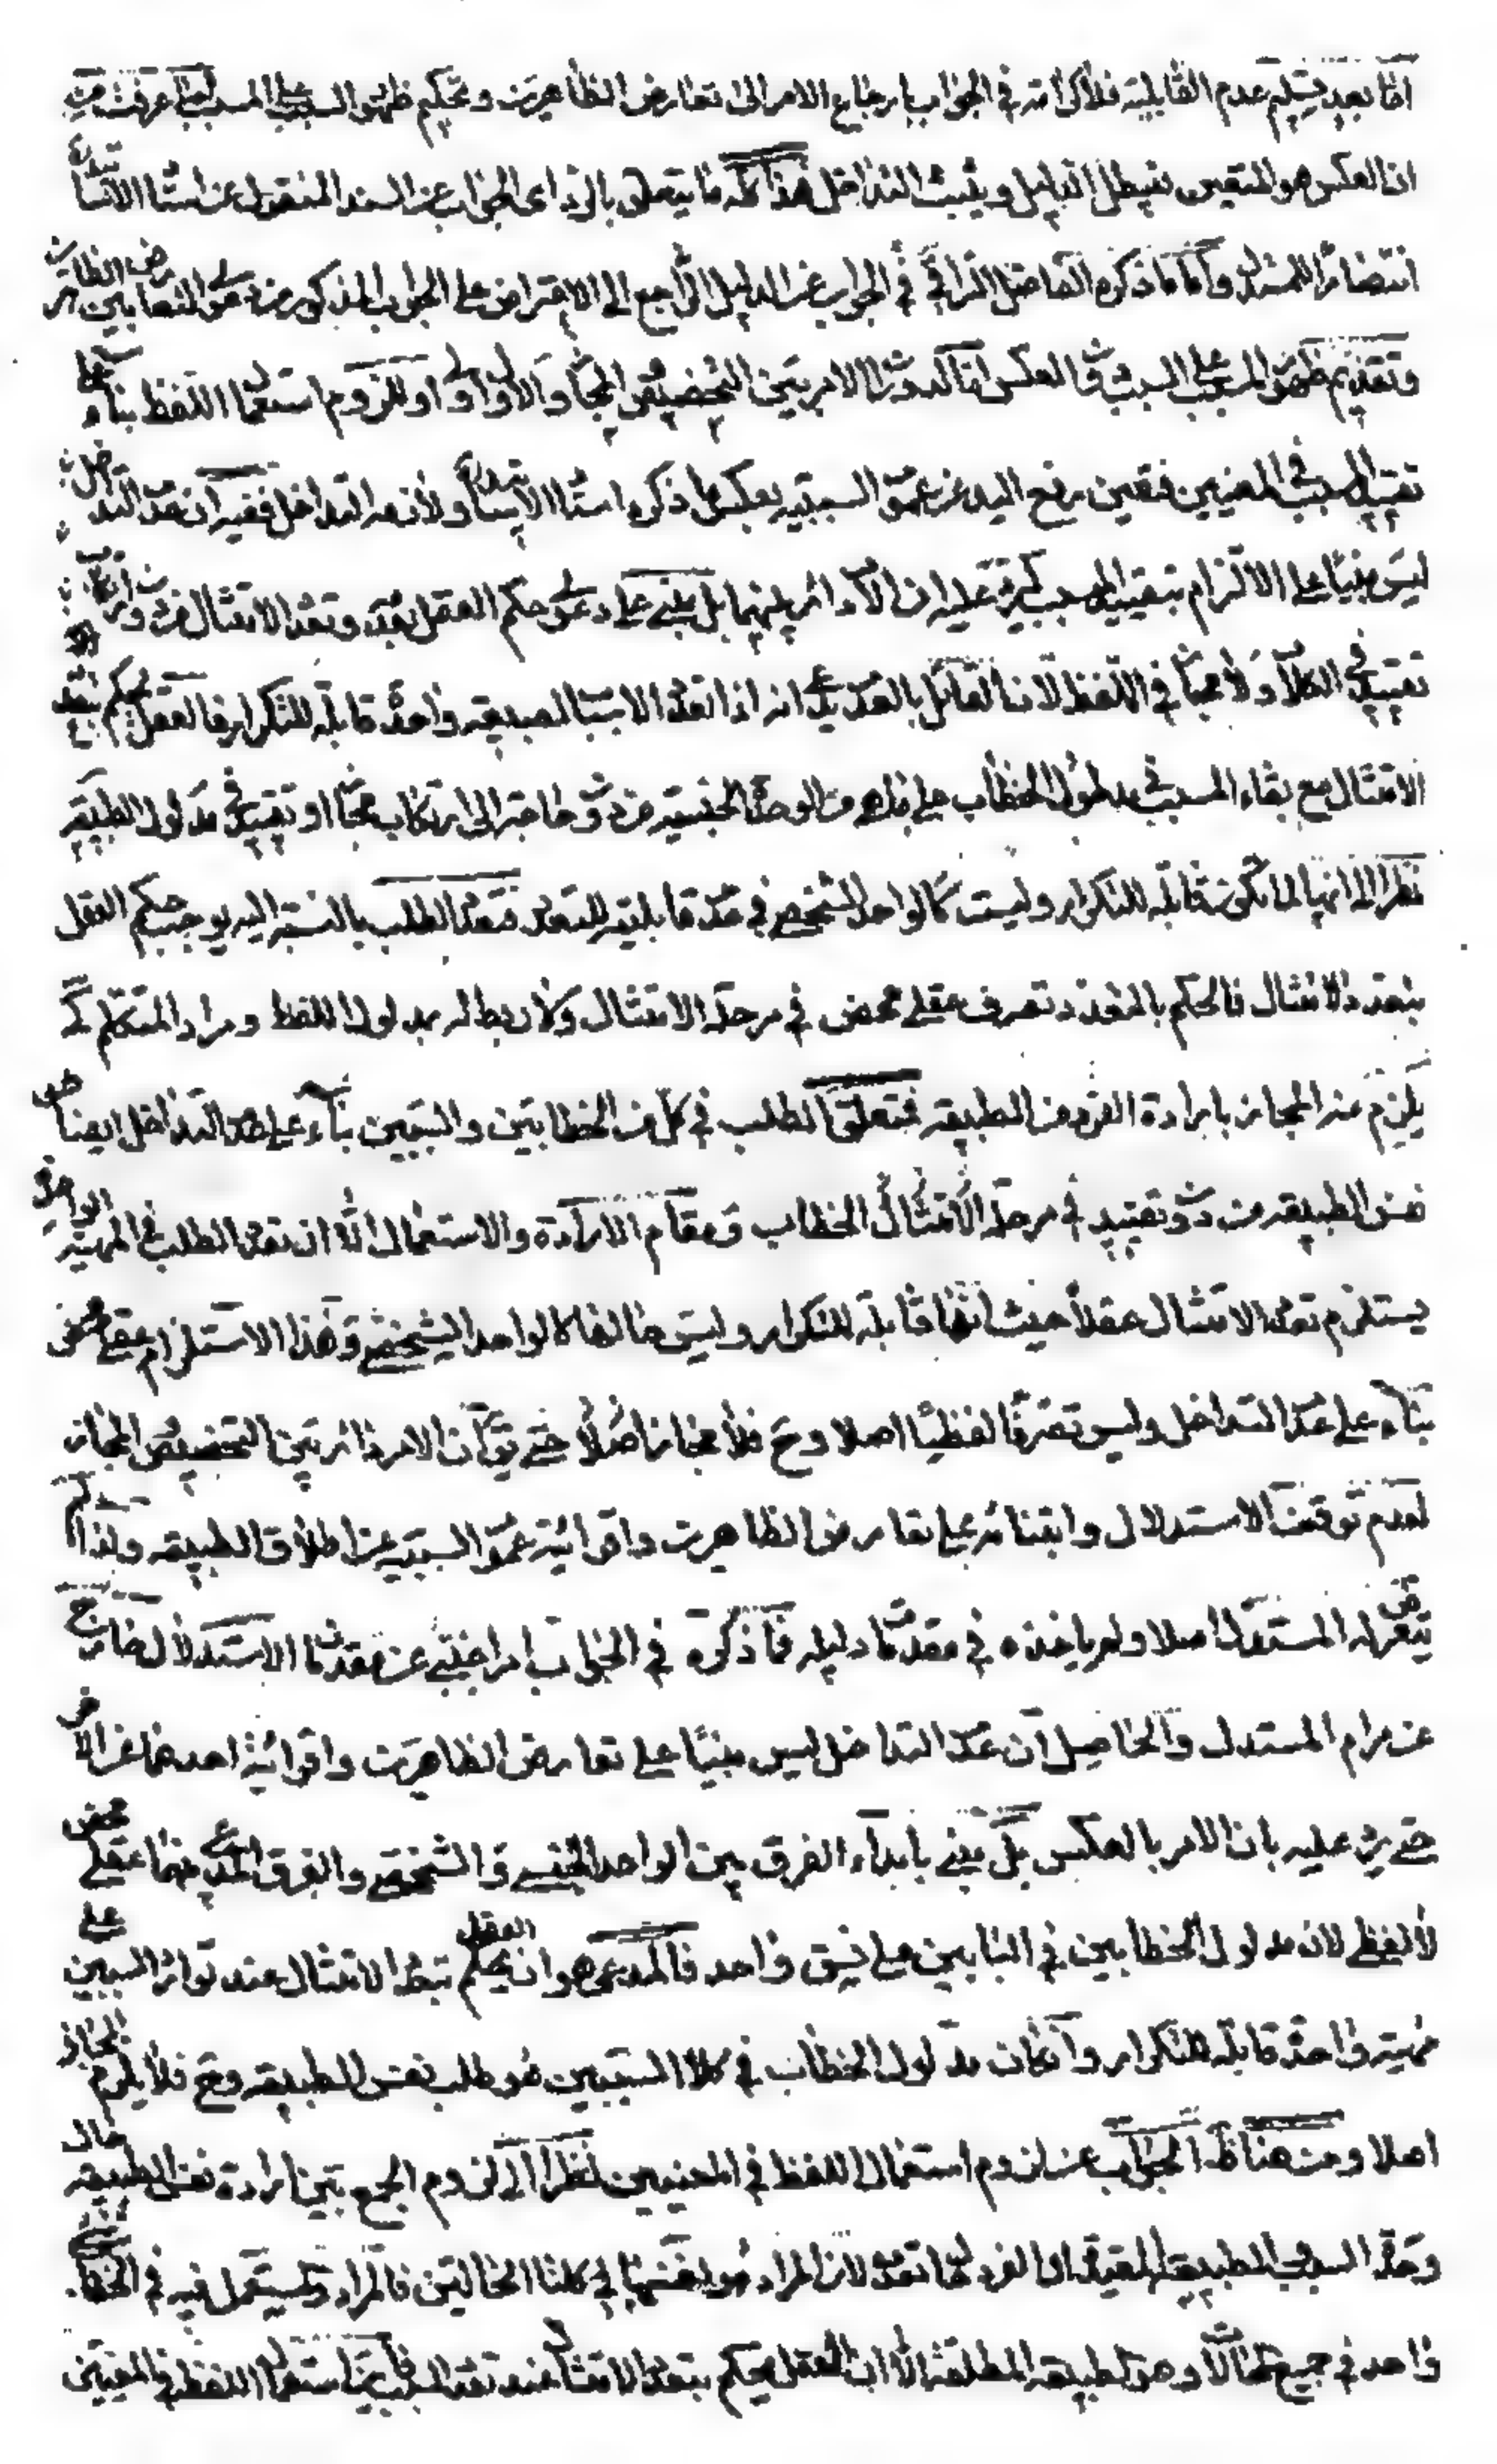 امّا بعد تسليم عدم القابليّة فلا كرامة في الجواب بارجاع الامر الى تعارض الظاهرين وتحكيم ظهور السبب على المسبب لما عرفت من
ان العكس هو المتعين فيبطل الدليل ويثبت التداخل هذا كله ما يتعلق بالرّد اى الجواب عن السند المنقول عن استا الاستا
انتصارًا للمستدل وامّا ما ذكره الفاضل النراقى في الجواب عن الدليل الراجع الى الاعتراض على الجواب المذكور من دعوى التعا بين
وتقديم ظهور المسبب على السبب فالعكس امّا لدوران الامر بين التخصيص والمجاز والاول اولى او للزوم استعمال اللفظ بناء على
تقييد المسبب في المعنيين فتعين رفع اليد عن عموم السببيه بعكس ما ذكره استا الاستا ولانه التداخل ففيه ان عدم التداخل
ليس مبنيّا على الالتزام بتقييد المسبب كي يرد عليه ان الامر دائر بينهما بل مبنى على دعوى حكم العقل بتعدد الامتثال من دون
تقييد في الكلام ولا مجاز في اللفظ لان القائل بالتعدد يدعى انه اذا تعدد الاسباب لطبيعة واحدة قابلة للتكرار فالعقل يحكم بتعدد
الامتثال مع بقاء المسبب في مدلول الخطاب على ظاهره من الوحدة الجنسيّة من دون حاجة الى ارتكاب مجاز او تقييد في مدلول الطبيعة
نظرا الى انها لما تكون قابلة للتكرار وليست كالواحد الشخصي في عدم قابليته للتعدد فتعدد الطلب بالنسبة اليه يوجب حكم العقل
بتعدد الامتثال فالحكم بالتعدد تصرف عقلي محض في مرحلة الامتثال ولا ربط له بمدلول اللفظ ومراد المتكلم كى
يلزم عنه المجاز بارادة الفرد من الطبيعة فمتعلق الطلب في كل من الخطابين والسببين بناء على عدم التداخل ايضا هى
نفس الطبيعة من دون تقييد في مرحلة الامتثال الخطاب ومقام الارادة والاستعمال الا ان تعدد الطلب في المهيّة الواحدة
يستلزم تعدد الامتثال عقلا حيث انها قابلة للتكرار وليس حالها كالواحد الشخصي وهذا الاستلزام عقلي محض
بناء على عدم التداخل وليس تصرفا لفظيّا اصلا وح فلا مجاز اصلا حتى يق ان الامر دائر بين التخصيص والمجاز
لعدم توقف الاستدلال وابتنائه على تعارض الظاهرين واقوائية عموم السببيه عن اطلاق الطبيعة ولذا لم
يتعرض له المستدل اصلا ولم ياخذه في مقدما دليله فما ذكره في الجواب امر اجنبى عن مقدما الاستدلال خارج
عن مرام المستدل والحاصل ان عدم التداخل ليس مبنيا على تعارض الظاهرين واقوائية احدهما عن الاخر
حتى يرد عليه بان الامر بالعكس بل مبنى بابداء الفرق بين الواحد الجنسى والشخصى والفرق المدعى بينهما عقلى محض
لا لفظى لان مدلول الخطابين في البابين على نسق واحد فالمدعى هو ان يحكم العقل بتعدد الامتثال عند توارد السببين
مهية واحدة قابلة للتكرار وان كان مدلول الخطاب في كلا السببين هو طلب نفس الطبيعة وح فلا يلزم المجاز
اصلا ومن هنا ظهر الجواب عن لزوم استعمال اللفظ في المعنيين نظرا الى لزوم الجمع بين ارادة نفس الطبيعة حال
وحدة السبب والطبيعة المقيدة او الفرد لما تعدد لان المراد هو نفسها في كلتا الحالتين فالمراد والمستعمل فيه في الخطاب
واحد في جميع الحالا وهو الطبيعة المطلقة الا ان العقل يحكم بتعدد الامتثال عند تعدد السبب فاين استعمال اللفظ في المعنيين